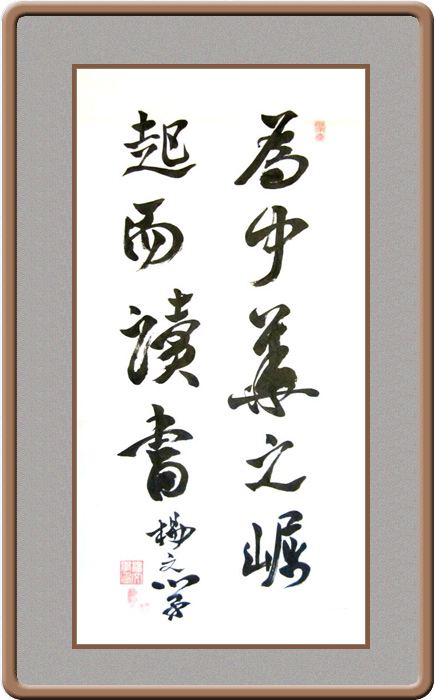 為中華之崛
起而讀書
楊文學